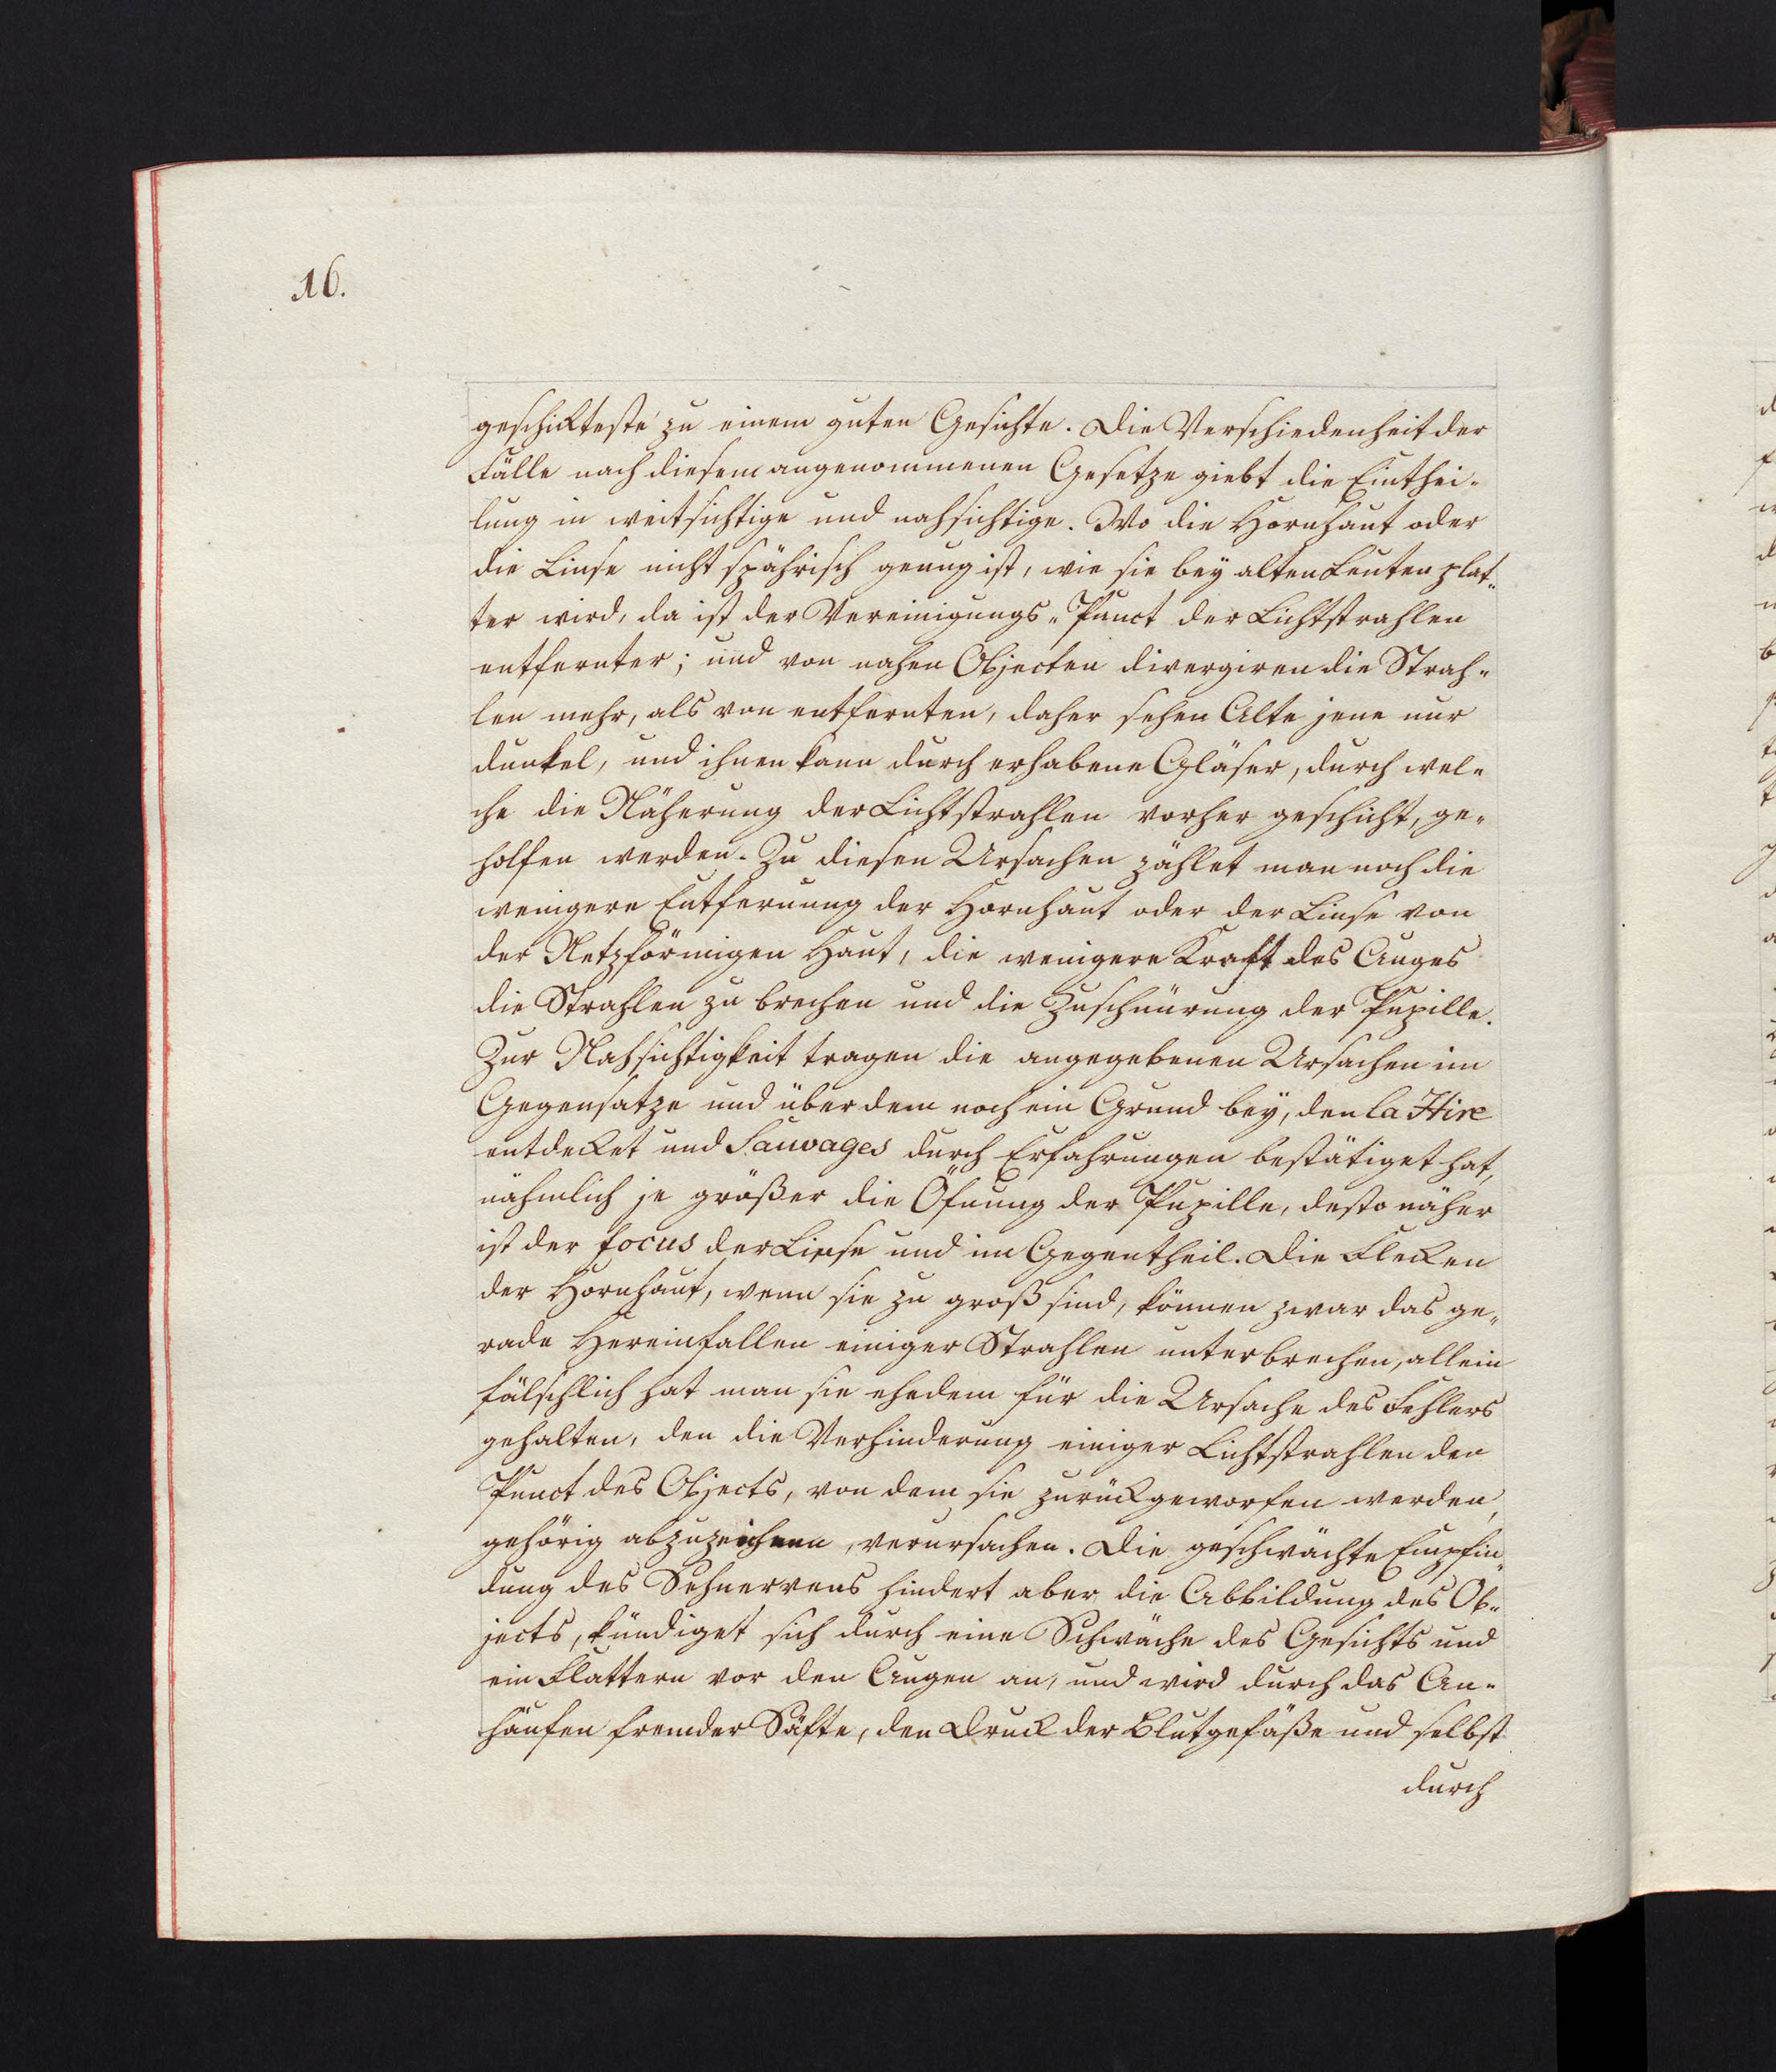 16.
geschickteste zu einem guten Gesichte. Die Verschiedenheit der
Fälle nach diesem angenommenen Gesetze giebt die Einthei-
lung in weitsichtige und nahsichtige. Wo die Hornhaut oder
die Linse nicht sphärisch genug ist, wie sie bey alten Leuten plat-
ter wird, da ist der Vereinigungs-Punct der Lichtstrahlen
entfernter; und von nahen Objecten divergiren die Strah-
len mehr, als von entfernten, daher sehen Alte jene nur
dunkel, und ihnen kann durch erhabene Gläser, durch wel-
che die Näherung der Lichtstrahlen vorher geschicht, ge-
holfen werden. Zu diesen Ursachen zählet man noch die
wenigere Entfernung der Hornhaut oder der Linse von
der Netzförmigen Haut, die wenigere Kraft des Auges
die Strahlen zu brechen und die Zuschnürung der Pupille.
Zur Nahsichtigkeit tragen die angegebenen Ursachen im
Gegensatze und über dem noch ein Grund bey, den la Hire
entdecket und Sauvages durch Erfahrungen bestätiget hat,
nähmlich je größer die Öfnung der Pupille, desto näher
ist der focus der Linse und im Gegentheil. Die Flecken
der Hornhaut, wenn sie zu groß sind, können zwar das ge-
rade Hereinfallen einiger Strahlen unterbrechen, allein
fälschlich hat man sie ehedem für die Ursache des Fehlers
gehalten, den die Verhinderung einiger Lichtstrahlen den
Punct des Objects, von dem sie zurückgeworfen werden,
gehörig abzuzeichnen, verursachen. Die geschwächte Empfin-
dung des Sehnervens hindert aber die Abbildung des Ob-
jects, kündiget sich durch eine Schwäche des Gesichts und
ein Flattern vor den Augen an, und wird durch das An-
häufen fremder Säfte, den Druck der Blutgefäße und selbst
durch